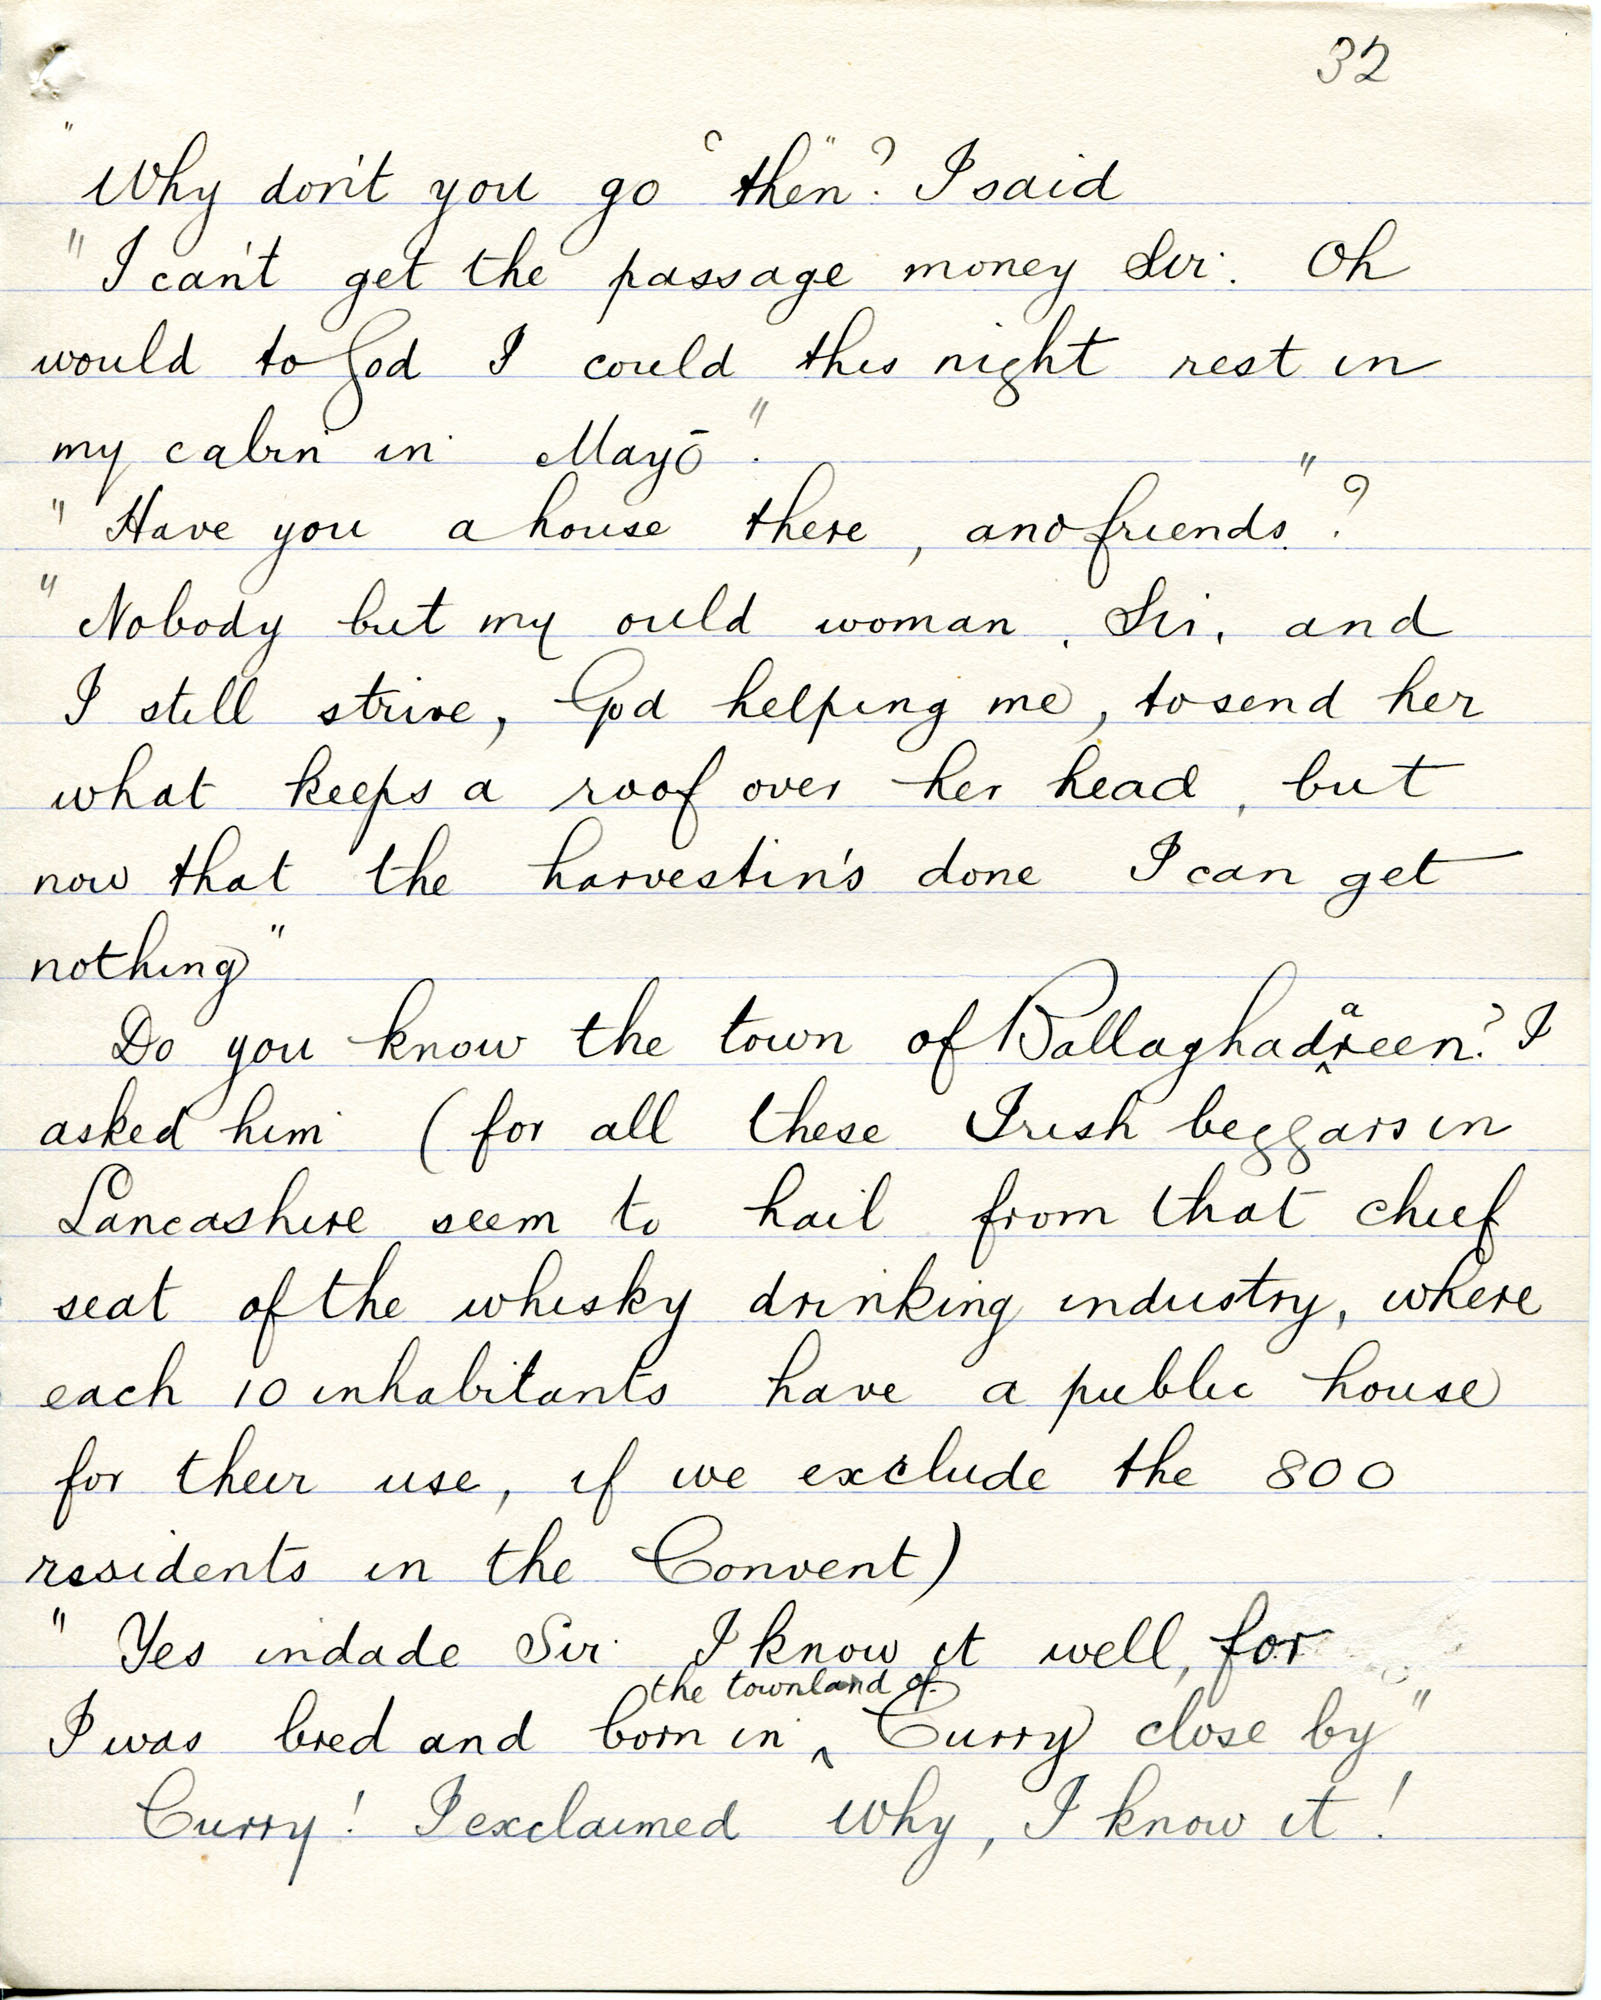 32
"Why don't you go "then"? I said
"I can't get the passage money Sir. Oh
would to God I could this night rest in
my cabin in Mayō".
"Have you a house there, and friends"?
"Nobody but my ould woman, Sir, and
I still strive, God helping me, to send her
what keeps a roof over her head, but
now that the harvestin's done I can get
nothing"
Do you know the town of Ballaghadareen? I
asked him (for all these Irish beggars in
Lancashire seem to hail from that chief
seat of the whisky drinking industry, where
each 10 inhabitants have a public house
for their use, if we exclude the 800
residents in the Convent)
"Yes indade Sir I know it well, for
I was bred and born in the townland of Curry close by"
Curry! I exclaimed Why, I know it!